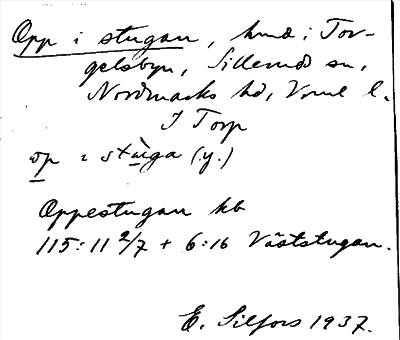 Opp i stugan, hmd i Tor-
gelsbyn, Silleruds sn,
Nordmarks hd, Vrml l.
I Torp
op i stùga (y.)
Oppestugan kb
115:11 2/7 + 6:16 Väststugan.
E. Silfors 1937.